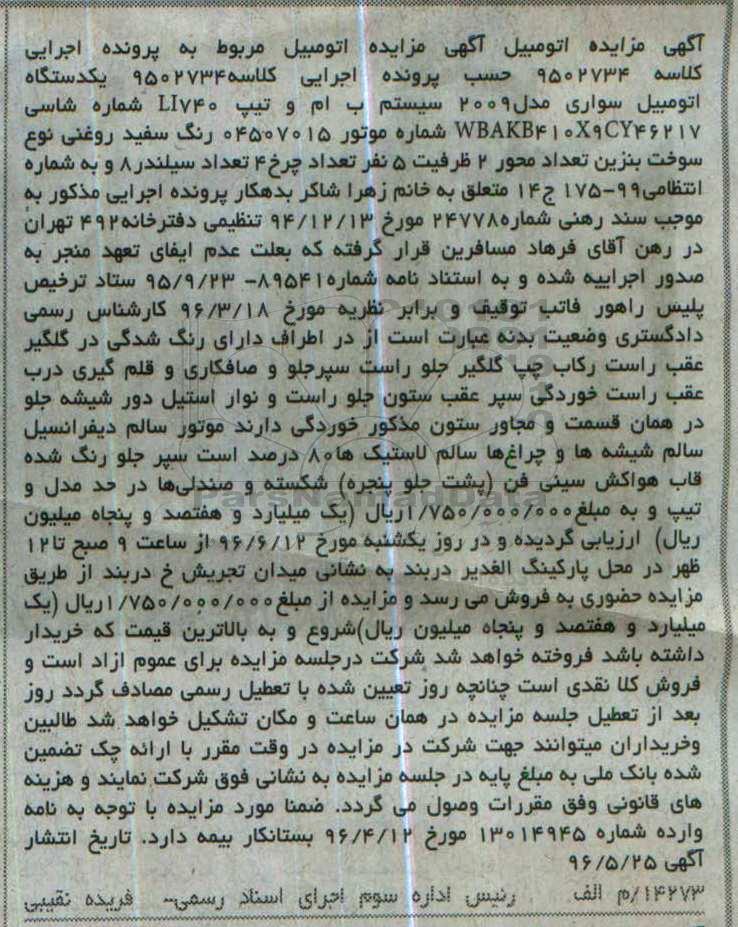 آگهی مزایده اتومبیل آگهی مزایده اتومبیل مربوط به پرونده اجرایی
کلاسه ۹۵۰۲۷۳۴ حسب پرونده اجرایی کلاسه۹۵۰۲۷۳۴ یکدستگاه
اتومبیل سواری مدل۲۰۰۹ سیستم ب ام و تیپ LI۷۴۰ شماره شاسی
WBAKB۴۱۰X۹CY۴۶۲۱۷ شماره موتور ۰۴۵۰۷۰۱۵ رنگ سفید روغنی نوع
سوخت بنزین تعداد محور ۲ ظرفیت ۵ نفر تعداد چرخ۴ تعداد سیلندر۸ و به شماره
انتظامی۹۹-۱۷۵ ج۱۴ متعلق به خانم زهرا شاکر بدهکار پرونده اجرایی مذکور به
موجب سند رهنی شماره۲۴۷۷۸ مورخ ۹۴/۱۲/۱۳ تنظیمی دفترخانه۴۹۲ تهران
در رهن آقای فرهاد مسافرین قرار گرفته که بعلت عدم ایفای تعهد منجر به
صدور اجراییه شده و به استناد نامه شماره۸۹۵۴۱- ۹۵/۹/۲۳ ستاد ترخیص
پلیس راهور فاتب توقیف و برابر نظریه مورخ ۹۶/۳/۱۸ کارشناس رسمی
دادگستری وضعیت بدنه عبارت است از در اطراف دارای رنگ شدگی در گلگیر
عقب راست رکاب چپ گلگیر جلو راست سپرجلو و صافکاری و قلم گیری درب
عقب راست خوردگی سپر عقب ستون جلو راست و نوار استیل دور شیشه جلو
در همان قسمت و مجاور ستون مذکور خوردگی دارند موتور سالم دیفرانسیل
سالم شیشه ها و چراغ‌ها سالم لاستیک ها۸۰ درصد است سپر جلو رنگ شده
قاب هواکش سینی فن (پشت جلو پنجره) شکسته و صندلی‌ها در حد مدل و
تیپ و به مبلغ۱/۷۵۰/۰۰۰/۰۰۰ریال (یک میلیارد و هفتصد و پنجاه میلیون
ریال) ارزیابی گردیده و در روز یکشنبه مورخ ۹۶/۶/۱۲ از ساعت ۹ صبح تا۱۲
ظهر در محل پارکینگ الغدیر دربند به نشانی میدان تجریش خ دربند از طریق
مزایده حضوری به فروش می رسد و مزایده از مبلغ۱/۷۵۰/۰۰۰/۰۰۰ریال (یک
میلیارد و هفتصد و پنجاه میلیون ریال)شروع و به بالاترین قیمت که خریدار
داشته باشد فروخته خواهد شد شرکت درجلسه مزایده برای عموم ازاد است و
فروش کلا نقدی است چنانچه روز تعیین شده با تعطیل رسمی مصادف گردد روز
بعد از تعطیل جلسه مزایده در همان ساعت و مکان تشکیل خواهد شد طالبین
وخریداران میتوانند جهت شرکت در مزایده در وقت مقرر با ارائه چک تضمین
شده بانک ملی به مبلغ پایه در جلسه مزایده به نشانی فوق شرکت نمایند و هزینه
های قانونی وفق مقررات وصول می گردد. ضمنا مورد مزایده با توجه به نامه
وارده شماره ۱۳۰۱۴۹۴۵ مورخ ۹۶/۴/۱۲ بستانکار بیمه دارد. تاریخ انتشار
آگهی ۹۶/۵/۲۵
۱۴۲۷۳/م الف رئیس اداره سوم اجرای اسناد رسمی- فریده نقیبی
ParsNamadData